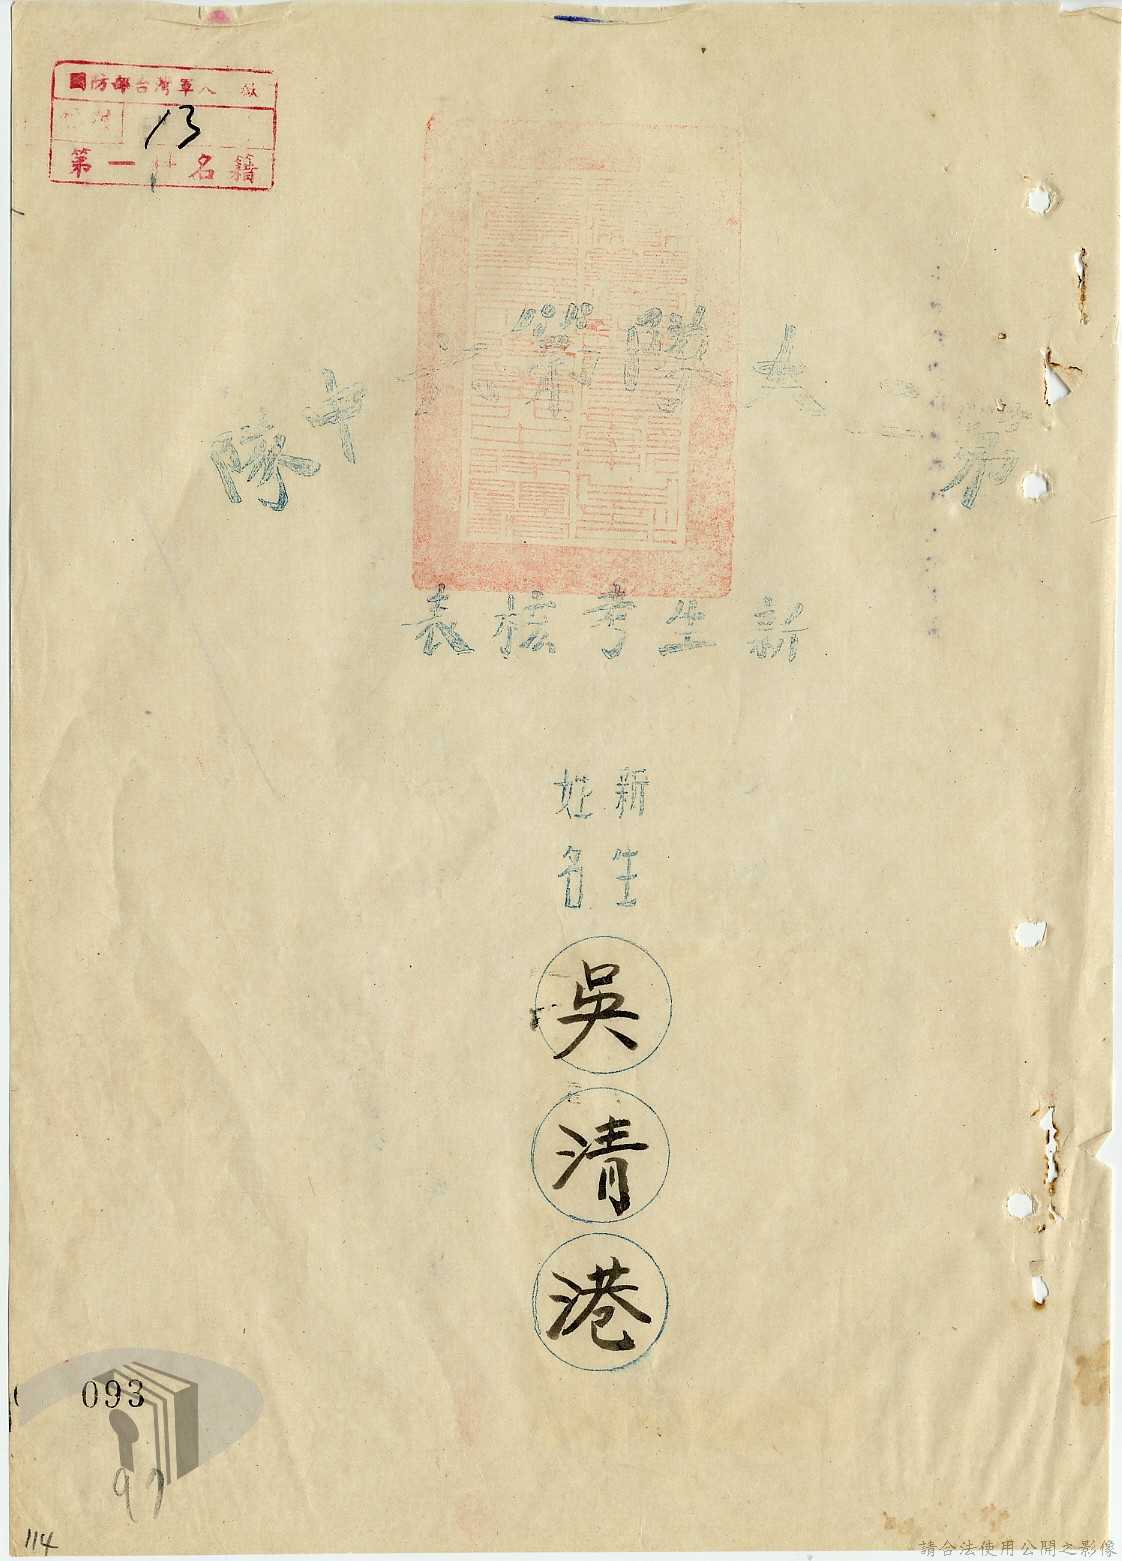 國防部台灣軍人
13
第一 名籍
第二大隊第六中隊
新生考核表
新生
姓名
吳清港
093
97
114
請合法使用公開之影像